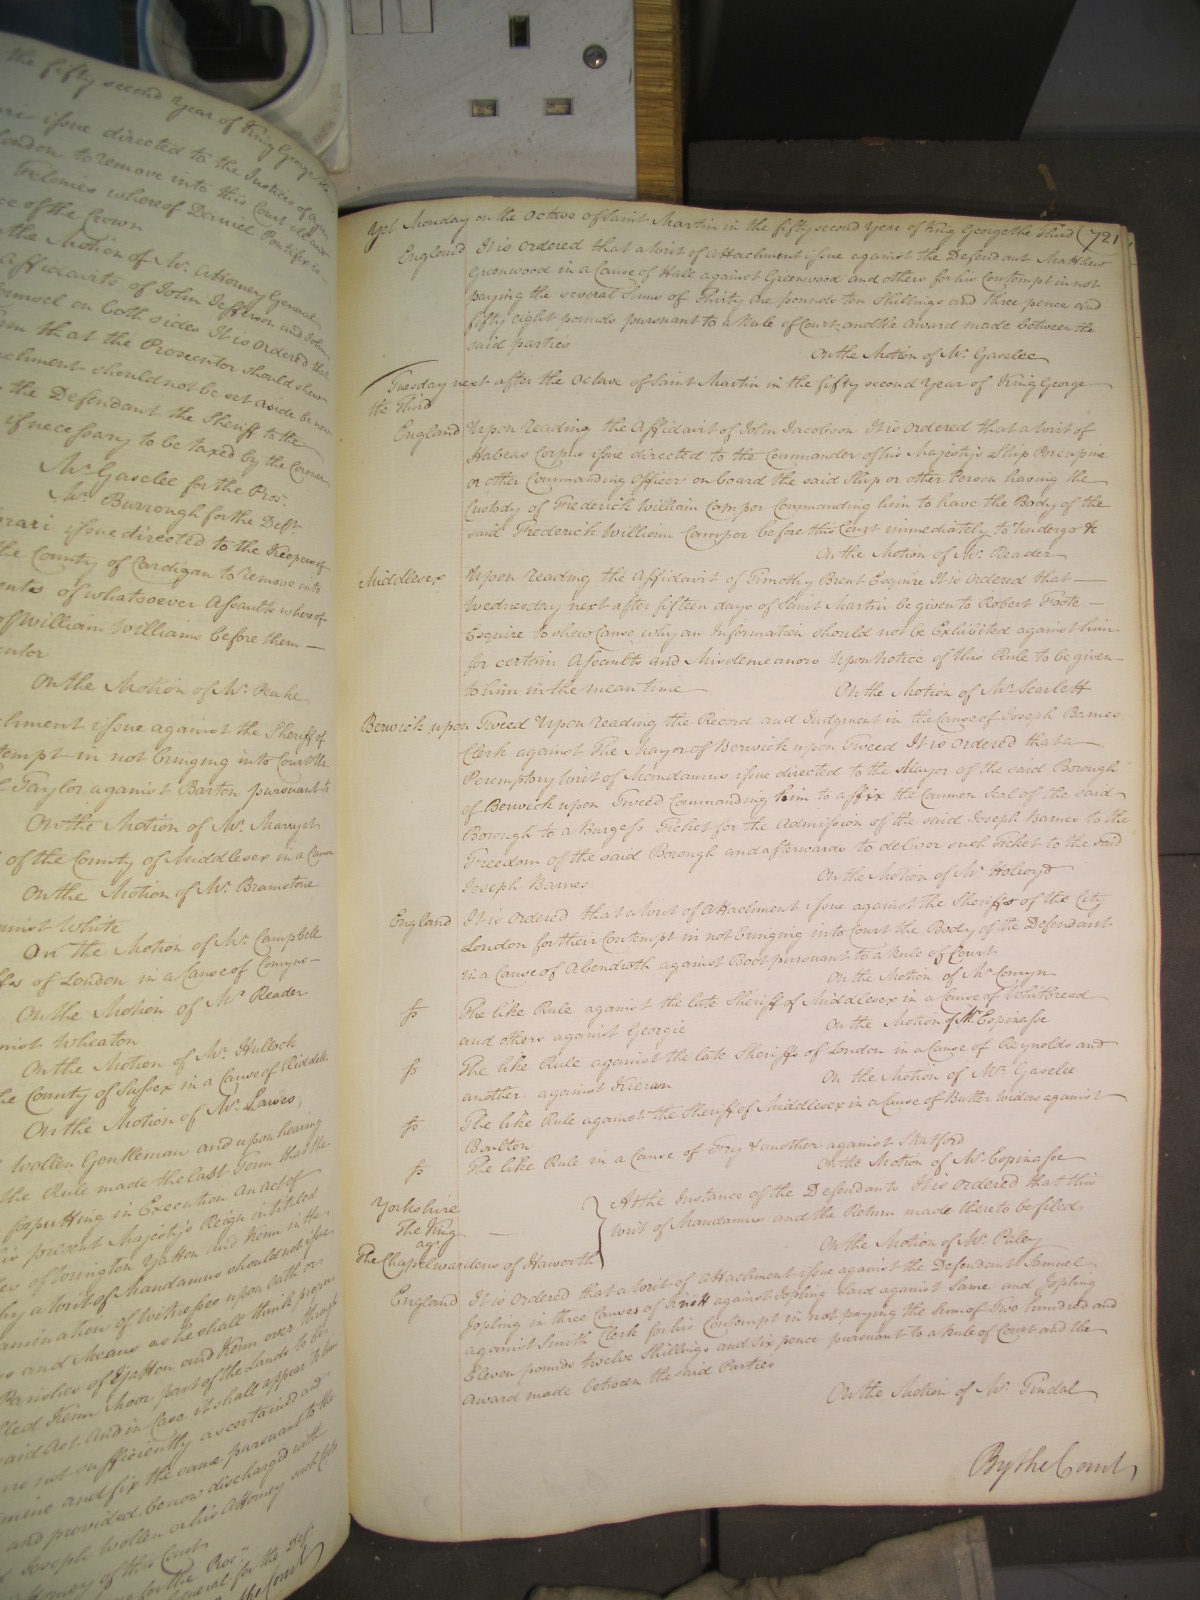 the fifty second Year of King George the
issue directed to the Justices of Oyer
London to remove into this Court all and
Felonies whereof Daniel Pontifex is
of the Crown
the Motion of Mr. Attorney General
Affidavits of John Jefferson and John
Counsel on both sides It is ordered that
that the Prosecutor should shew
should not be set aside be now
the Defendant the Sheriff to the
if necessary to be taxed by the Coroner
Mr. Gaselee for the Pros.
Mr. Burrough for the Deft.
issue directed to the Keepers of
the County of Cardigan to remove into
of whatsoever Assaults whereof
of William Williams before them
On the Motion of Mr. Peake
issue against the Sheriff of
in not bringing into Court the
Taylor against Barton pursuant to
On the Motion of Mr. Marryat
of the County of Middlesex in a Cause
On the Motion of Mr. Bramstone
against White
On the Motion of Mr. Campbell
of London in a Cause of Comyns
On the Motion of Mr. Reader
against Wheaton
On the Motion of Mr. Hullock
the County of Sussex in a Cause of Riddell
On the Motion of Mr. Lawes
Wollen Gentleman and upon hearing
the Rule made the last Term that the
for putting in Execution an Act of
present Majesty's Reign intitled
of Yatton and Kenn in the
why a Writ of Mandamus should not issue
Examination of Witnesses upon Oath or
and Means as he shall think proper
Parishes of Yatton and Kenn over those
called Kenn Moor part of the Lands to be
said Act. And in Case it shall appear to be
are not sufficiently ascertained and
and fix the same pursuant to the
and provided be now discharged with
Joseph Wollen or his Attorney such Costs
Attorney of this Court
for the Pros.
General for the Deft.
the Court
Yet Monday on the Octave of Saint Martin in the fifty second Year of King George the Third (721
England It is ordered that a writ of Attachment issue against the Defendant Matthew
Greenwood in a Cause of Hall against Greenwood and others for his Contempt in not
paying the several Sums of Thirty one pounds ten Shillings and three pence and
fifty eight pounds pursuant to a Rule of Court and the Award made between the
said parties On the Motion of Mr. Gaselee
Tuesday next after the Octave of Saint Martin in the fifty second Year of King George
the Third
England Upon reading the Affidavit of John Jacobson It is ordered that a writ of
Habeas Corpus issue directed to the Commander of his Majestys Ship Porcupine
or other Commanding Officer on board the said Ship or other Person having the
Custody of Frederick William Camper Commanding him to have the Body of the
said Frederick William Camper before this Court immediately to undergo &c
On the Motion of Mr. Reader
Middlesex Upon reading the Affidavit of Timothy Brent Esquire It is ordered that
Wednesday next after fifteen days of Saint Martin be given to Robert Foote
Esquire to shew Cause why an Information should not be Exhibited against him
for certain Assaults and Misdemeanors Upon notice of this Rule to be given
to him in the mean time On the Motion of Mr. Scarlett
Berwick upon Tweed Upon reading the Record and Judgment in the Cause of Joseph Barnes
Clerk against The Mayor of Berwick upon Tweed It is ordered that a
Peremptory Writ of Mandamus issue directed to the Mayor of the said Borough
of Berwick upon Tweed Commanding him to affix the Common Seal of the said
Borough to a Burgess Ticket for the Admission of the said Joseph Barnes to the
Freedom of the said Borough and afterwards to deliver such Ticket to the said
Joseph Barnes On the Motion of Mr. Holroyd
England It is ordered that a Writ of Attachment issue against the Sheriffs of the City
London for their Contempt in not bringing into Court the Body of the Defendant
in a Cause of Abendroth against Boot pursuant to a Rule of Court
On the Motion of Mr. Comyn
fs The like Rule against the late Sheriff of Middlesex in a Cause of Whitbread
and others against Georgie On the Motion of Mr. Espinasse
fs The like Rule against the late Sheriffs of London in a Cause of Reynolds and
another against Kieran On the Motion of Mr. Gaselee
fs The like Rule against the Sheriff of Middlesex in a Cause of Butler Widow against
Boulton
fs The like Rule in a Cause of Fry & another against Statford
On the Motion of Mr. Espinasse
Yorkshire
The King
agt.
The Chapelwardens of Haworth
At the Instance of the Defendants It is ordered that this
Writ of Mandamus and the Return made thereto be filed
On the Motion of Mr. Paley
England It is ordered that a Writ of Attachment issue against the Defendant Samuel
Jopling in three Causes of against Jopling Laid against Same and Jopling
against Smith Clerk for his Contempt in not paying the Sum of Two hundred and
Eleven pounds twelve Shillings and six pence pursuant to a Rule of Court and the
Award made between the said Parties
On the Motion of Mr. Tindal
By the Court